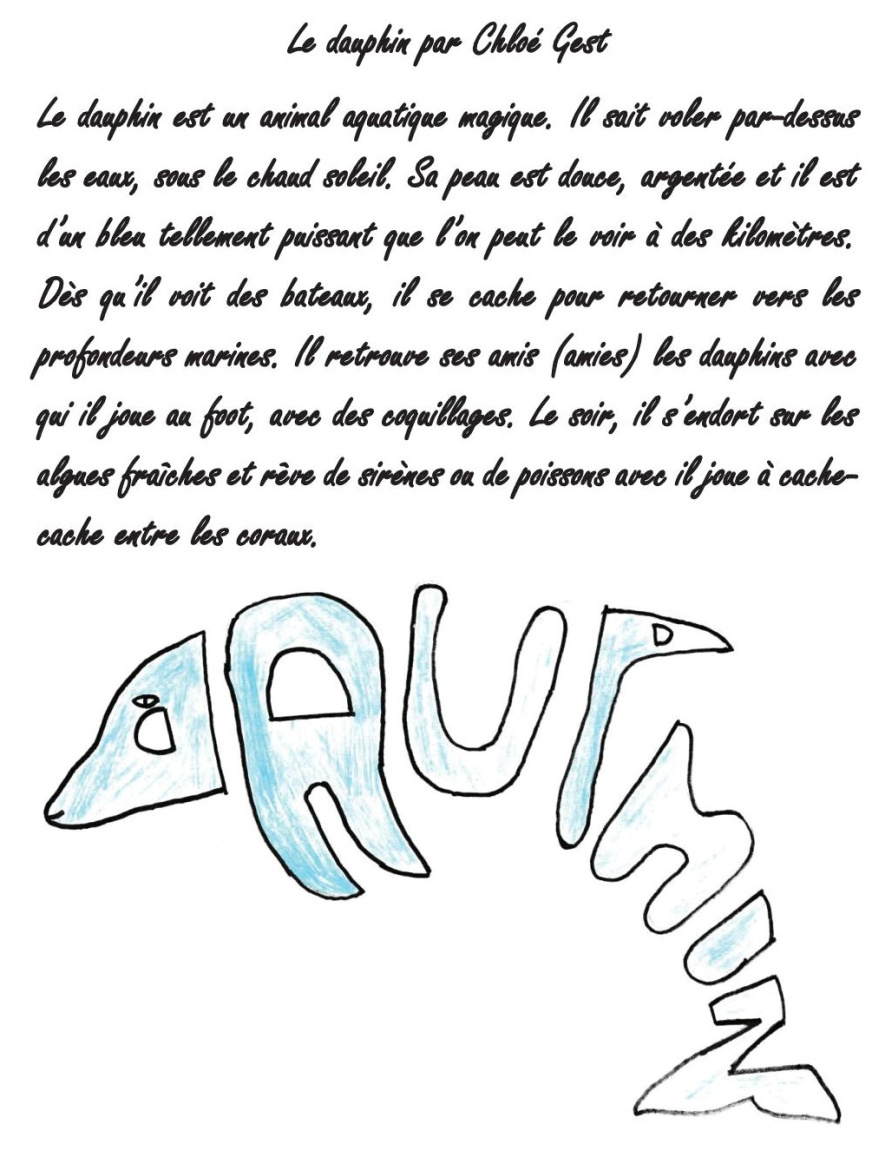 Le dauphin par Chloé Gest
Le dauphin est un animal aquatique magique. Il sait voler par-dessus
les eaux, sous le chaud soleil. Sa peau est douce, argentée et il est
d'un bleu tellement puissant que l'on peut le voir à des kilomètres.
Dès qu'il voit des bateaux, il se cache pour retourner vers les
profondeurs marines. Il retrouve ses amis (amies) les dauphins avec
qui il joue au foot, avec des coquillages. Le soir, il s'endort sur les
algues fraîches et rêve de sirènes ou de poissons avec il joue à cache-
cache entre les coraux.
dAUPhiN